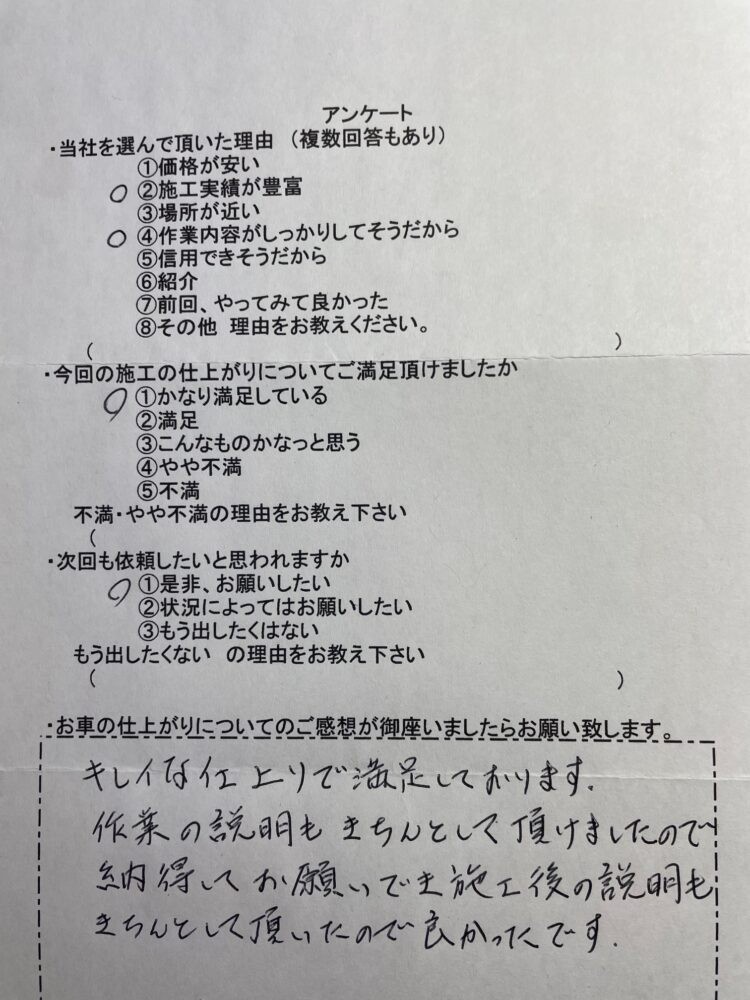 アンケート
・当社を選んで頂いた理由 （複数回答もあり）
①価格が安い
○ ②施工実績が豊富
③場所が近い
○ ④作業内容がしっかりしてそうだから
⑤信用できそうだから
⑥紹介
⑦前回、やってみて良かった
⑧その他 理由をお教えください。
( )
・今回の施工の仕上がりについてご満足頂けましたか
○ ①かなり満足している
②満足
③こんなものかなっと思う
④やや不満
⑤不満
不満・やや不満の理由をお教え下さい
(
・次回も依頼したいと思われますか
○ ①是非、お願いしたい
②状況によってはお願いしたい
③もう出したくはない
もう出したくない の理由をお教え下さい
( )
・お車の仕上がりについてのご感想が御座いましたらお願い致します。
キレイな仕上りで満足しております.
作業の説明もきちんとして頂けましたので
納得してお願いでき施工後の説明も
きちんとして頂いたので良かったです.